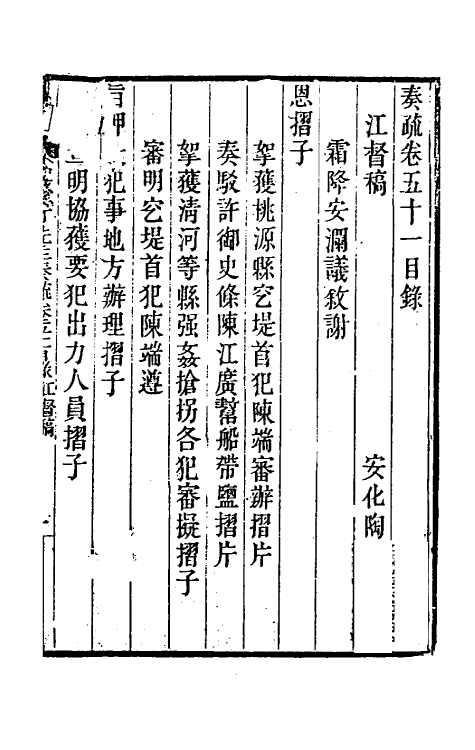 奏疏卷五十一目錄
江督稿 安化陶
霜降安瀾議敘謝
恩摺子
拏獲桃源縣穵堤首犯陳端審辦摺片
奏駁許御史條陳江廣幫船帶鹽摺片
拏獲清河等縣强姦搶拐各犯審擬摺子
審明穵堤首犯陳端遵
旨 犯事地方辦理摺子
明協獲要犯出力人員摺子
江督稿